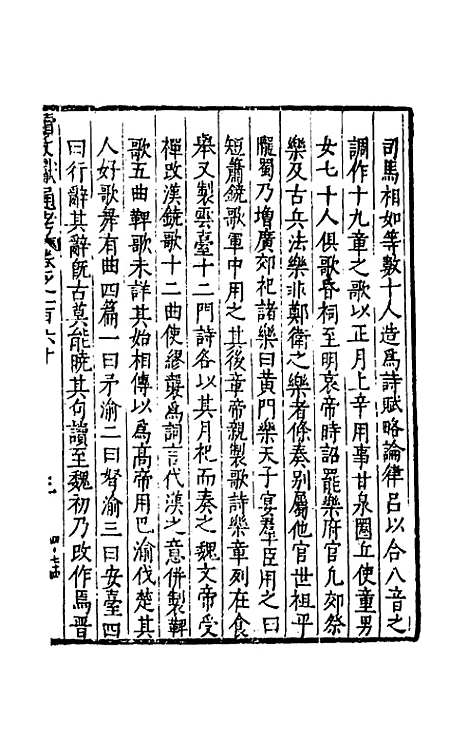 司馬相如等數十人造爲詩賦略論律呂以合八音之
調作十九童之歌以正月上辛用事甘泉圜丘使童男
女七十人俱歌昏祠至明哀帝時詔罷樂府官凡郊祭
樂及古兵法樂非鄭衛之樂者條奏別屬他官世祖平
隴蜀乃增廣郊祀諸樂曰黃門樂天子宴羣臣用之曰
短簫鐃歌軍中用之其後章帝親製歌詩樂章列在食
舉又製雲臺十二門詩各以其月祀而奏之魏文帝受
禪改漢鐃歌十二曲使繆襲爲詞言代漢之意併製鞞
歌五曲鞞歌未詳其始相傳以爲高帝用巴渝伐楚其
人好歌舞有曲四篇一曰矛渝二曰弩渝三曰安臺四
曰行辭其辭旣古莫能曉其句讀至魏初乃改作焉晋
續文獻通考 卷之一百六十